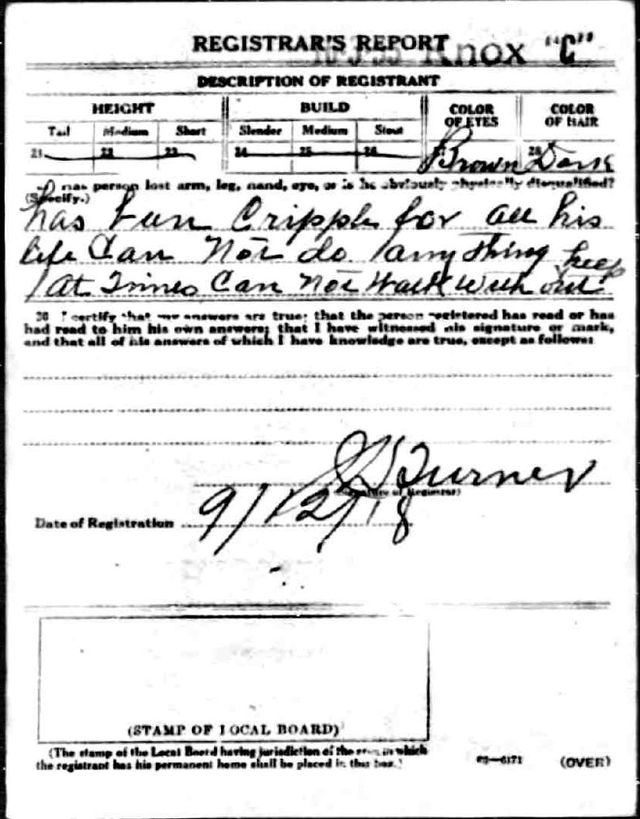 REGISTRAR'S REPORT Knox "C"
DESCRIPTION OF REGISTRANT
HEIGHT BUILD COLOR OF EYES COLOR OF HAIR
Tall Medium Short Slender Medium Stout
21 22 23 24 25 26 27 Brown 28 Dark
29 Has person lost arm, leg, hand, eye, or is he obviously physically disqualified?
(Specify.)
has bun Cripple for all his
life Can Not do any thing
at Times Can Not Walk with out
30 I certify that my answers are true; that the person registered has read or has
had read to him his own answers; that I have witnessed his signature or mark,
and that all of his answers of which I have knowledge are true, except as follows:
Turner
(Signature of Registrar)
Date of Registration 9/12/18
(STAMP OF LOCAL BOARD)
(The stamp of the Local Board having jurisdiction of the area in which
the registrant has his permanent home shall be placed in this box.)
03—6171 (OVER)